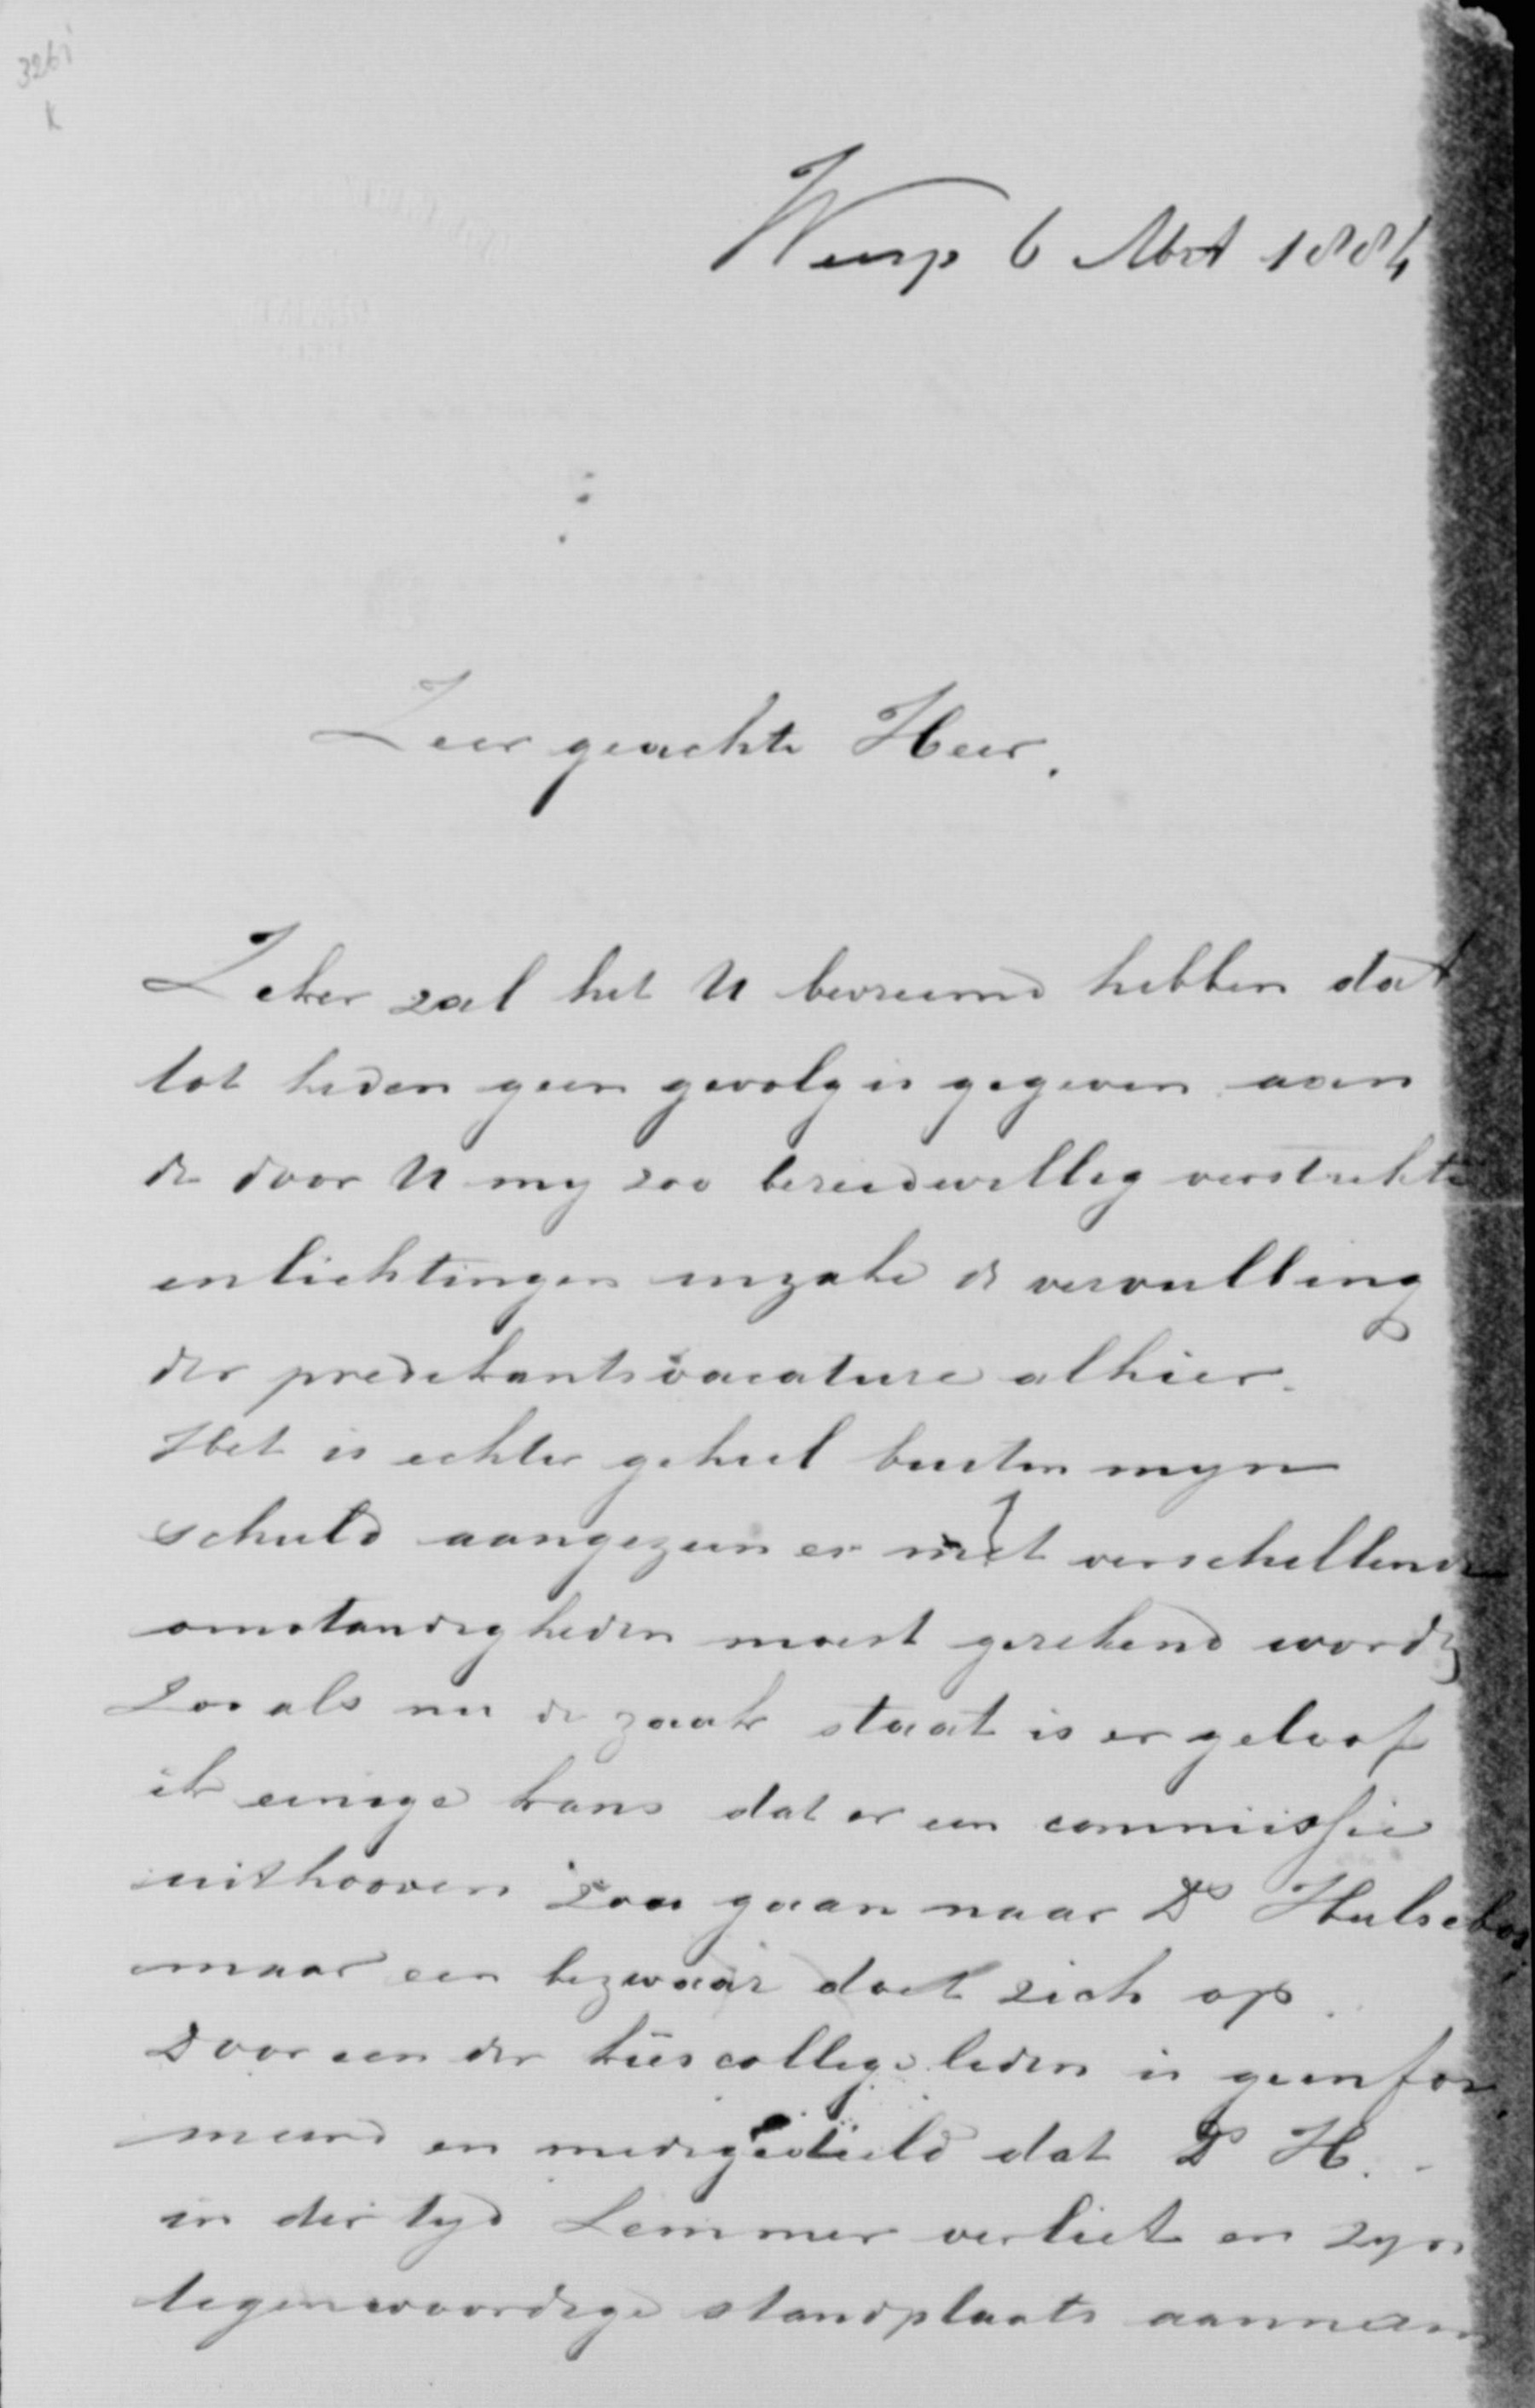 3261
k
Weesp 6 Mrt 1884
Zeer geachte Heer.
Zeker zal het U bevreemd hebben dat
tot heden geen gevolg is gegeven aan
de door U my zoo bereidwillig verstrekte
inlichtingen inzake de vervulling
der predikantsvacature alhier.
Het is echter geheel buiten myn
schuld aangezien er met verschillende
omstandigheden moest gerekend worden
Zooals nu de zaak staat is er geloof
ik eenige kans dat er een commissie
uithooren zou gaan naar Ds Hulsebos
maar een bezwaar doet zich op.
Door een der kiescollegeleden is geinfor
meerd en medegedeeld dat Ds H.
in der tyd Lemmer verliet en zyn
tegenwoordige standplaats aannam